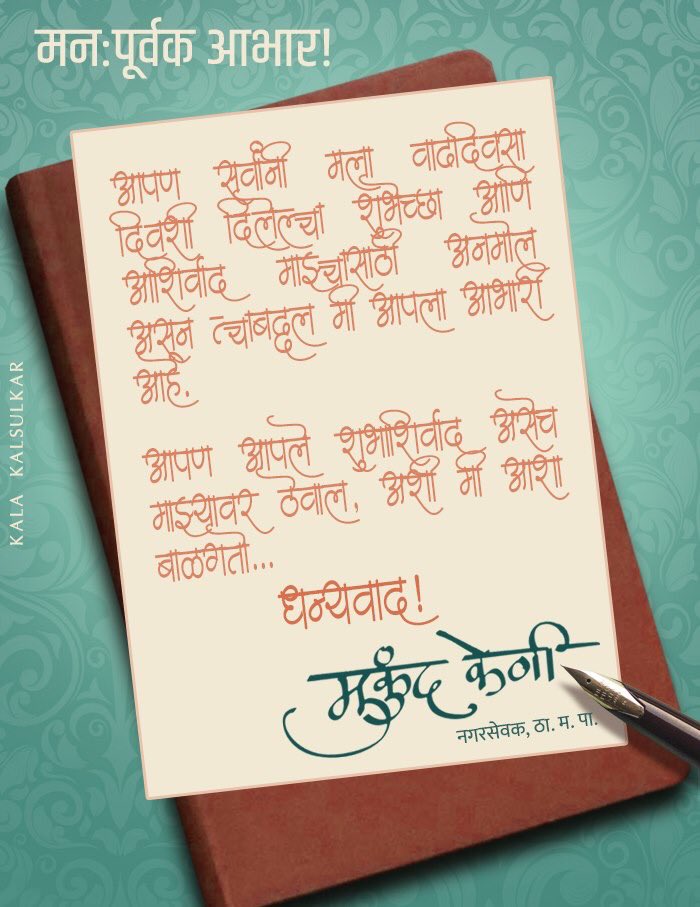 मनःपूर्वक आभार!
आपण सर्वांनी मला वाढदिवसा
दिवशी दिलेल्या शुभेच्छा आणि
आशिर्वाद माझ्यासाठी अनमोल
असून त्याबद्दल मी आपला आभारी
आहे.
आपण आपले शुभाशिर्वाद असेच
माझ्यावर ठेवाल, अशी मी आशा
बाळगतो...
धन्यवाद!
मुकुंद केणी
नगरसेवक, ठा. म. पा.
KALA KALSULKAR